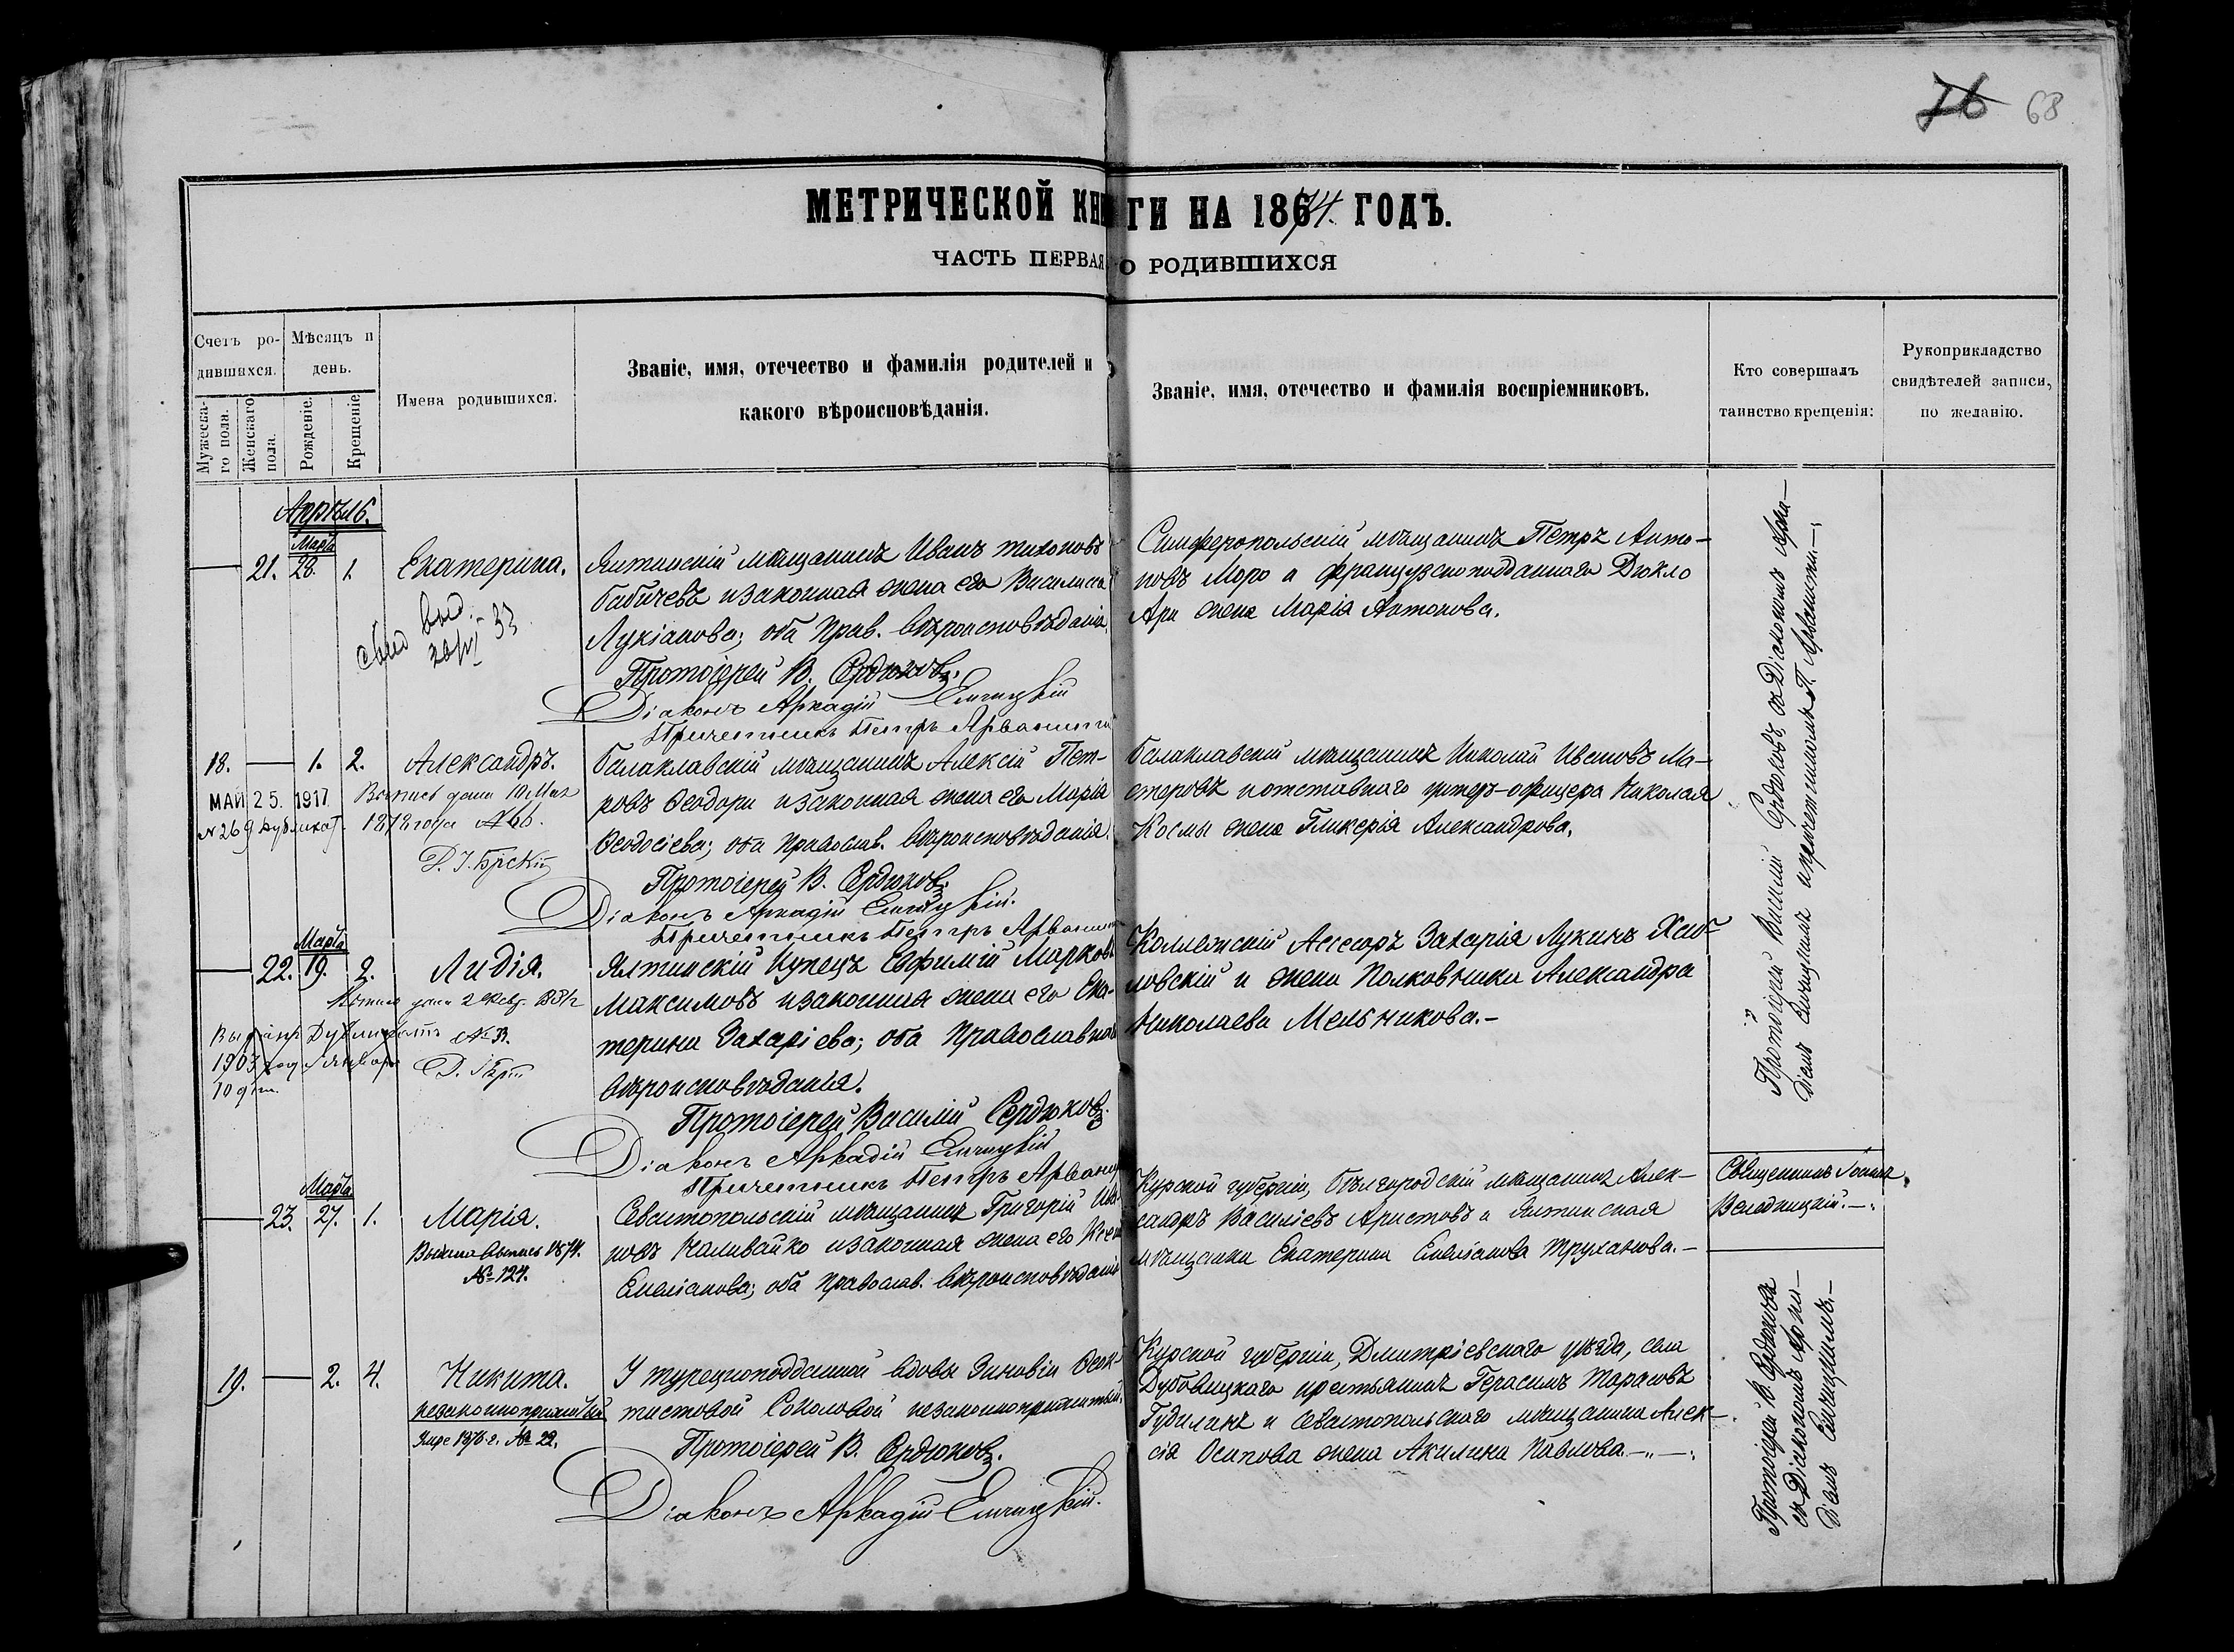 76 68
МЕТРИЧЕСКОЙ КНИГИ НА 1874 ГОДЪ.
ЧАСТЬ ПЕРВАЯ О РОДИВШИХСЯ
Счетъ ро-
дившихся.
Мѣсяцъ и
день.
Мужеска-
го пола.
Женскаго
пола.
Рожденіе.
Крещеніе.
Имена родившихся.
Званіе, имя, отечество и фамилія родителей и
какого вѣроисповѣданія.
Званіе, имя, отечество и фамилія воспріемниковъ.
Кто совершалъ
таинство крещенія:
Рукоприкладство
свидѣтелей записи,
по желанію.
Апрѣль.
Марта
21. 28. 1. Екатерина.
Ялтинскій мѣщанинъ Иванъ Тихоновъ
Бабичевъ и законная жена его Василиса
Лукіанова; оба прав. вѣроисповѣданія.
Протоіерей В. Сердюковъ.
Діаконъ Аркадій
Причетникъ Петръ
Симферопольскій мѣщанинъ Петръ Анто-
новъ Моро и французскоподданнаго Дюкло
Ари жена Марія Антонова.
18. 1. 2. Александръ.
МАЙ 25. 1917
№ 269 дубликат.
Выпись дана 10 Мая
1878 года № 66.
Балаклавскій мѣщанинъ Алексій Пет-
ровъ Ѳеодори и законная жена его Марія
Ѳеодосіева; оба православ. вѣроисповѣданія.
Протоіерей В. Сердюковъ.
Діаконъ Аркадій
Причетникъ Петръ
Балаклавскій мѣщанинъ Николай Ивановъ Ма-
стеровъ и отставнаго унтеръ-офицера Николая
Космы жена Гликерія Александрова.
Марта
22. 19. 2. Лидія.
Выданъ Дубликатъ
1903 года Января
10 дня.
Ялтинскій Купецъ Евфимій Марковъ
Максимовъ и законная жена его Ека-
терина Захаріева; оба Православнаго
вѣроисповѣданія.
Протоіерей Василій Сердюковъ.
Діаконъ Аркадій
Причетникъ Петръ
Коллежскій Ассесоръ Захарія Лукинъ
ловскій и жена Полковника Александра
Николаева Мельникова.-
Протоіерей Василій Сердюковъ съ Діакономъ Арка-
діемъ и причетникомъ П.
Марта
23. 27. 1. Марія.
Выдана выпись 1874.
№ 124.
Севастопольскій мѣщанинъ Григорій Ива-
новъ Наливайко и законная жена его Ксенія
Емеліанова; оба православ. вѣроисповѣданія
Курской губерніи, Бѣлгородскій мѣщанинъ Алек-
сандръ Василіевъ Аристовъ и Ялтинская
мѣщанка Екатерина Емеліанова Труханова.-
Священникъ Іоаннъ
19. 2. 4. Никита.
незаконноприжитый
Умре 1876 г. № 22.
У турецкоподданной вдовы Зиновіи Ѳеок-
тистовой Соколовой незаконноприжитый.
Протоіерей В. Сердюковъ.
Діаконъ Аркадій
Курской губерніи, Дмитріевскаго уѣзда, села
Дубовицкаго крестьянинъ Герасимъ Тарасовъ
Гудилинъ и Севастопольскаго мѣщанина Алек-
сія Осипова жена Акилина Павлова.
Протоіерей В. Сердюковъ
съ Діакономъ Арка-
діемъ